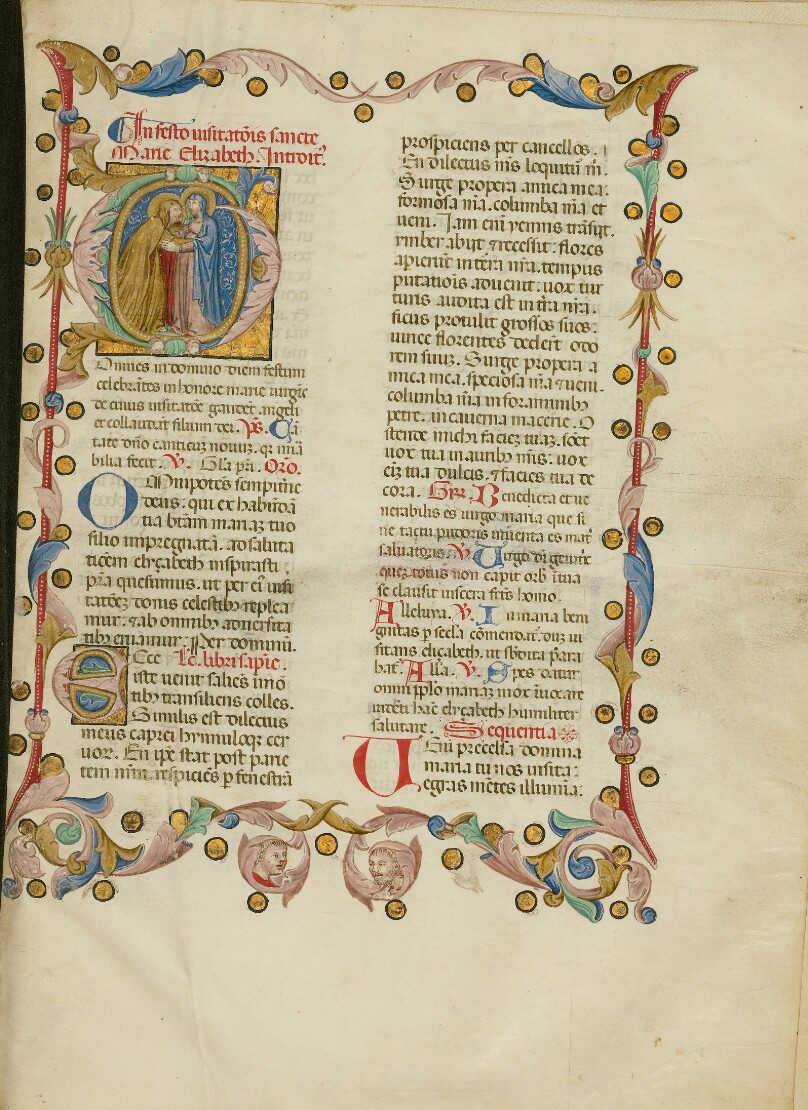 In festo uisitatōis sancte
Marie Elizabeth. Introit'.
Omnes in domino diem festum
celebrātes in honore marie uirgīe
de cuius uisitatōe gaudēt angeli
et collaudāt filium dei. Ps. Cā
tate dño canticuȝ nouuȝ. qr mīa
bilia fecit. V. Gła pr̄i. Oro.
Omīpotēs sempitīne
deus: qui ex habūdā
tia btām mariaȝ tuo
filio impregnatā. ad saluta
tiōem elyȝabeth inspirasti.
pr̄a quesumus. ut per eī uisi
tatōeȝ donis celestibȝ replea
mur. ⁊ ab omnibȝ aduersita
tibȝ eruamur. Per dominū.
Ecce Lc̄. libri sapīe.
iste uenit saliēs ī mō
tibȝ transiliens colles.
Similis est dilectus
meus capree hynnuloqȝ cer
uoꝝ. En ip̄e stat post parie
tem nr̄m. respiciēs p fenestrā
prospiciens per cancellos.
En dilectus m̄s loquitur m̄.
Surge propera amica mea.
formosa m̄a. columba m̄a et
ueni. Iam enī yemps trāsijt.
ymber abijt ⁊ recessit: flores
apierūt in terra nr̄a. tempus
putatiōis aduenit: uox tur
turis audita est in t̄ra nr̄a.
ficus protulit grossos suos:
uinee florentes dederūt odo
rem suuȝ. Surge propera a
mica mea. speciosa m̄a ⁊ ueni.
columba m̄a in foraminibȝ
petre. in cauerna macerie. O
stende michi facieȝ tuaȝ. soēt
uox tua in auribȝ m̄is: uox
eīȝ tua dulcis. ⁊ facies tua de
cora. Gr̄. Benedicta et ue
nerabilis es uirgo maria que si
ne tactu pudoris inuenta es mat'
saluatoris. V. Uirgo dī genitīx
queȝ totus non capit orb' ī tua
se clausit uiscera fc̄us homo.
Alleluya. V. In maria beni
gnitas p secla cōmendat'. quȝ ui
sitans elizabeth. ut sbdita para
bat. Alla. V. Spes datur
omni pplo mariaȝ mox iuocare
uicēti hāc elyȝabeth humiliter
salutare. Sequentia
Ueni precelsa domina
maria tu nos uisita:
egras mētes illumīa: